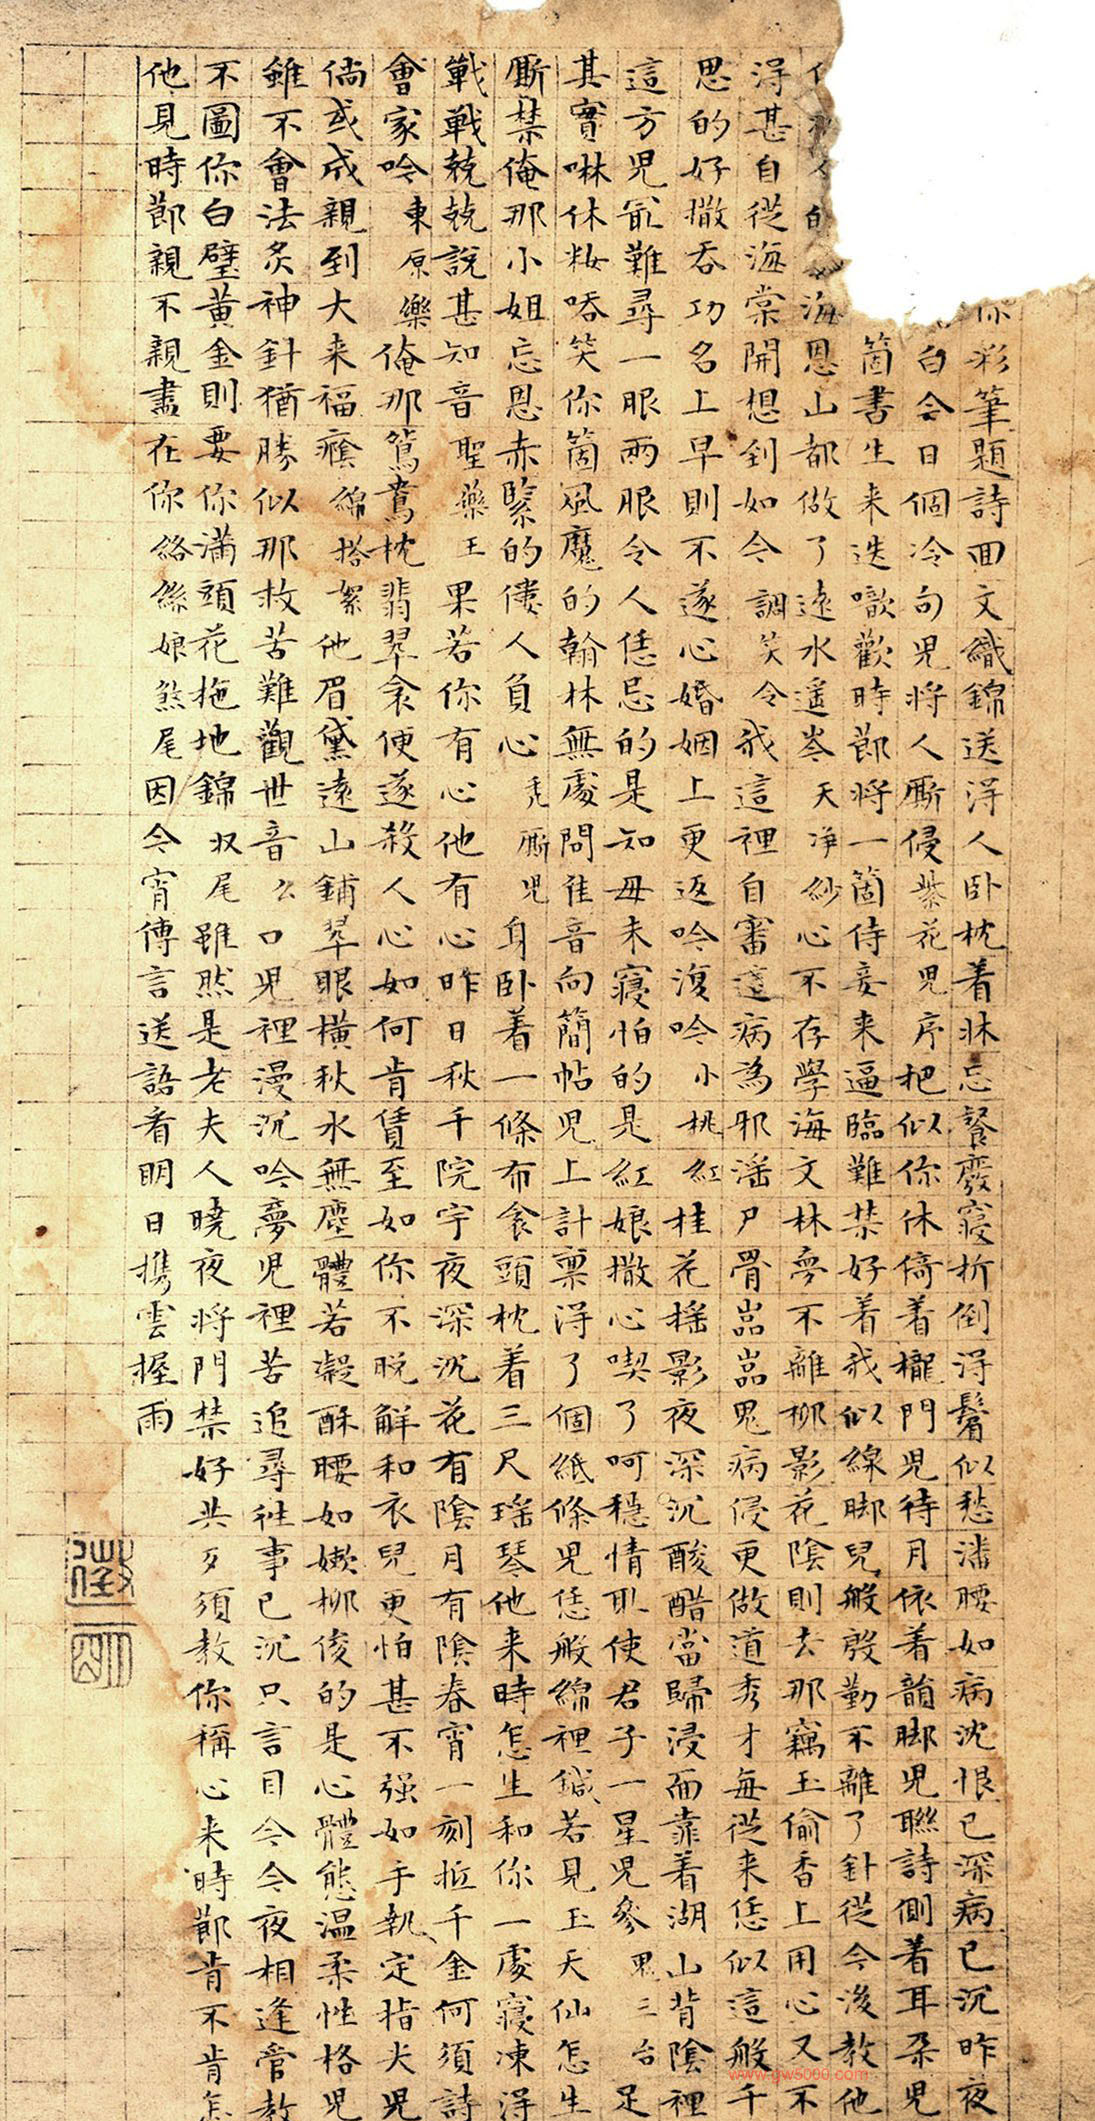 你彩筆題詩回文織錦送得人卧枕着牀忘飡廢寢折倒得鬢似愁潘腰如病沈恨已深病已沉昨夜
白今日個冷句兒將人厮侵紫花兒序把似你休倚着櫳門兒待月依着韻脚兒聯詩側着耳朶兒
箇書生来迭噷歡時節將一箇侍妾来逼臨難禁好着我似線脚兒般殷勤不離了針從今後教他
海恩山都做了遠水遥岑天净紗心不存學海文林夢不離柳影花陰則去那竊玉偷香上用心又不
淂甚自從海棠開想到如今調笑令我這裡自審這病爲邪滛尸骨嵓嵓鬼病侵更做道秀才每從来恁似這般千
思的好撒吞功名上早則不遂心婚姻上更返吟復吟小桃紅桂花摇影夜深沉酸醋當歸浸面靠着湖山背陰裡
這方兒最難尋一眼兩眼令人恁忌的是知母未寢怕的是紅娘撒心喫了呵穩情取使君子一星兒參鬼三台足
其實啉休粧唔笑你箇風魔的翰林無處問佳音向簡帖兒上計禀淂了個紙條兒恁般綿裡鍼若見玉天仙怎生
厮禁俺那小姐忘恩赤緊的僂人負心秃厮兒身卧着一條布衾頭枕着三尺瑶琴他来時怎生和你一處寢凍淂
戰戰兢兢說甚知音聖藥王果若你有心他有心昨日秋千院宇夜深沉花有陰月有陰春宵一刻抵千金何須詩
會家吟東原樂俺那鴛鴦枕翡翠衾便遂殺人心如何肯賃至如你不脱解和衣兒更怕甚不强如手執定指尖兒
倘或成親到大来福癊綿搭絮他眉黛遠山鋪翠眼横秋水無塵體若凝酥腰如嫩柳俊的是心體態温柔性格兒
雖不會法炙神針猶勝似那救苦難觀世音幺口兒裡漫沉吟夢兒裡苦追尋往事已沉只言目今今夜相逢管教
不圖你白璧黄金則要你滿頭花拖地錦收尾雖然是老夫人曉夜將門禁好共歹須教你稱心来時節肯不肯怎
他見時節親不親盡在你絡絲娘煞尾因今宵傳言送語看明日携雲握雨
徵明
www.gw5000.com